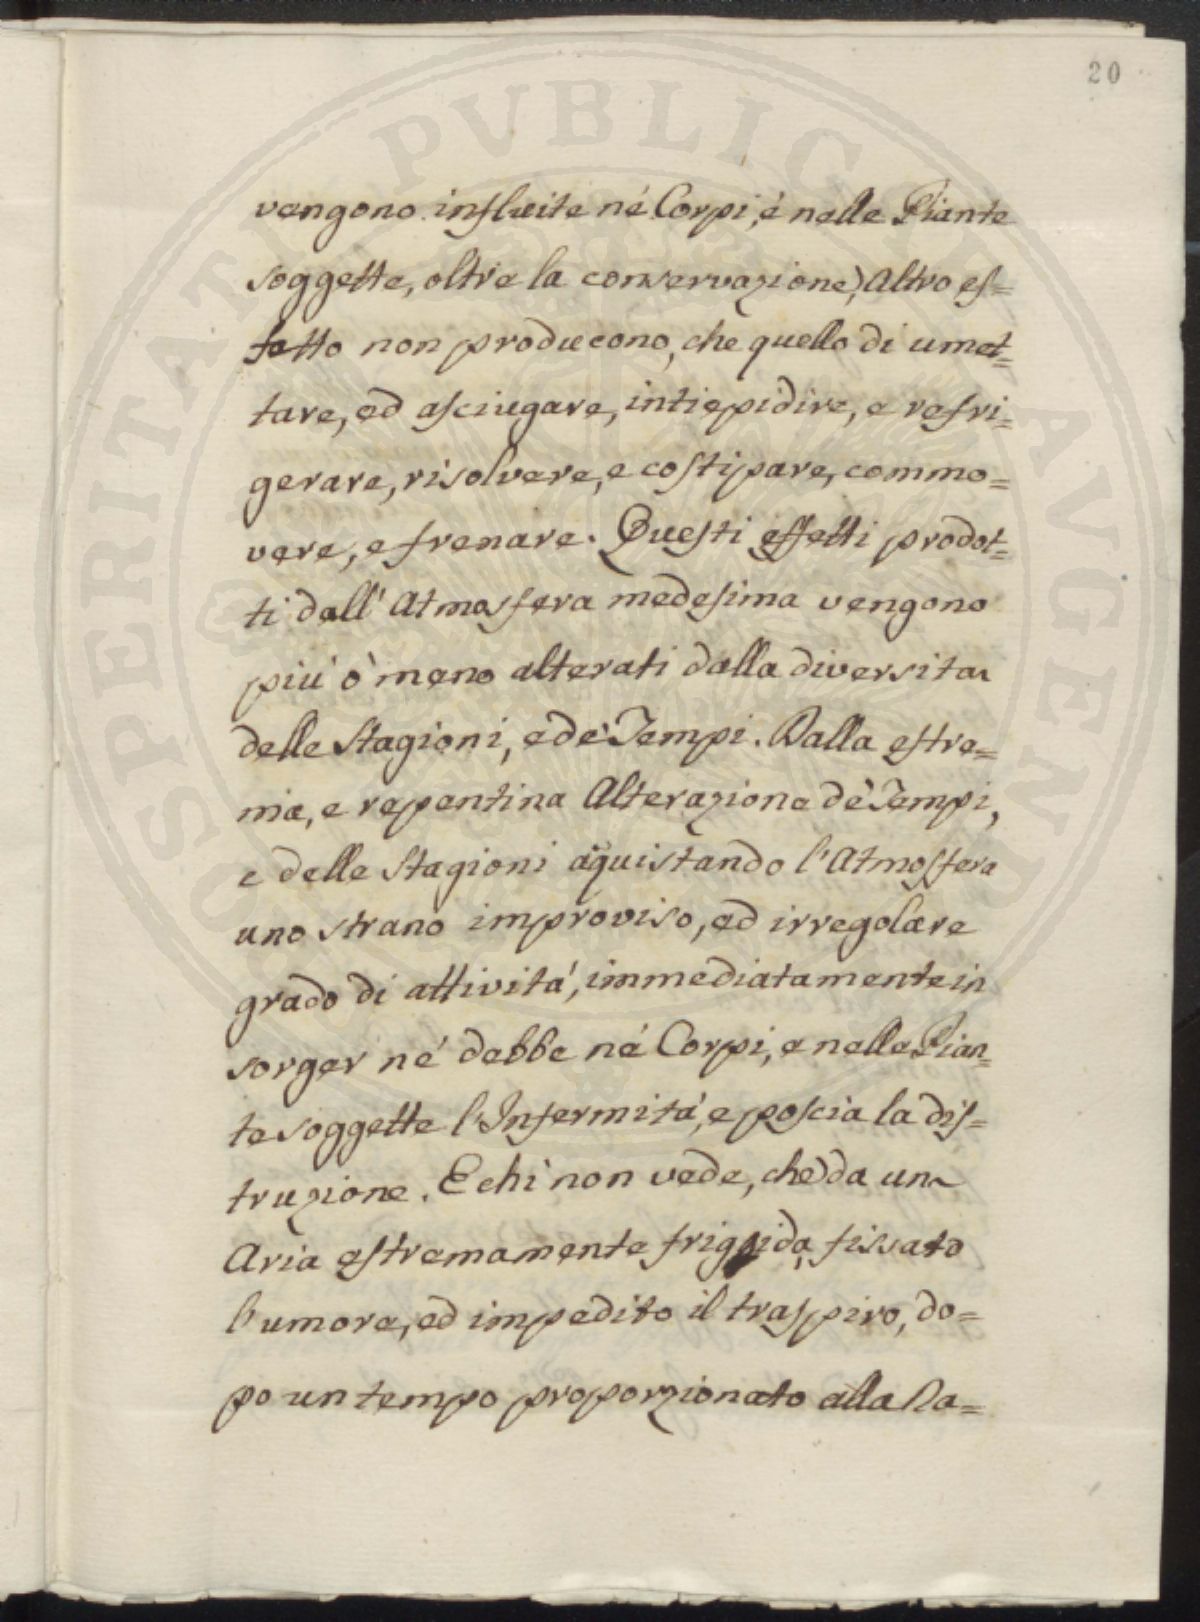 20
vengono influite né Corpi, è nelle Piante
soggette, oltre la conservazione) Altro ef=
fetto non producono, che quello di umet=
tare, ed asciugare, intiepidire, e refri=
gerare, risolvere, e costipare, commo=
vere, e frenare. Questi effetti prodot=
ti dall' Atmosfera medesima vengono
piú ò meno alterati dalla diversita
delle Stagioni, e de' Tempi. Dalla estre=
ma, e repentina Alterazione de' Tempi,
e delle Stagioni aquistando l'Atmosfera
uno strano improviso, ed irregolare
grado di attivitá, immediatamente in
sorger né debbe né Corpi, e nelle Pian=
te soggette l'Infermitá, e poscia la dis=
truzione. E chi non vede, che da un
Aria estremamente frigida, fissato
l'umore, ed impedito il traspiro, do=
po un tempo proporzionato alla Na=
PROSPERITATI PUBLICAE AVGENDAE